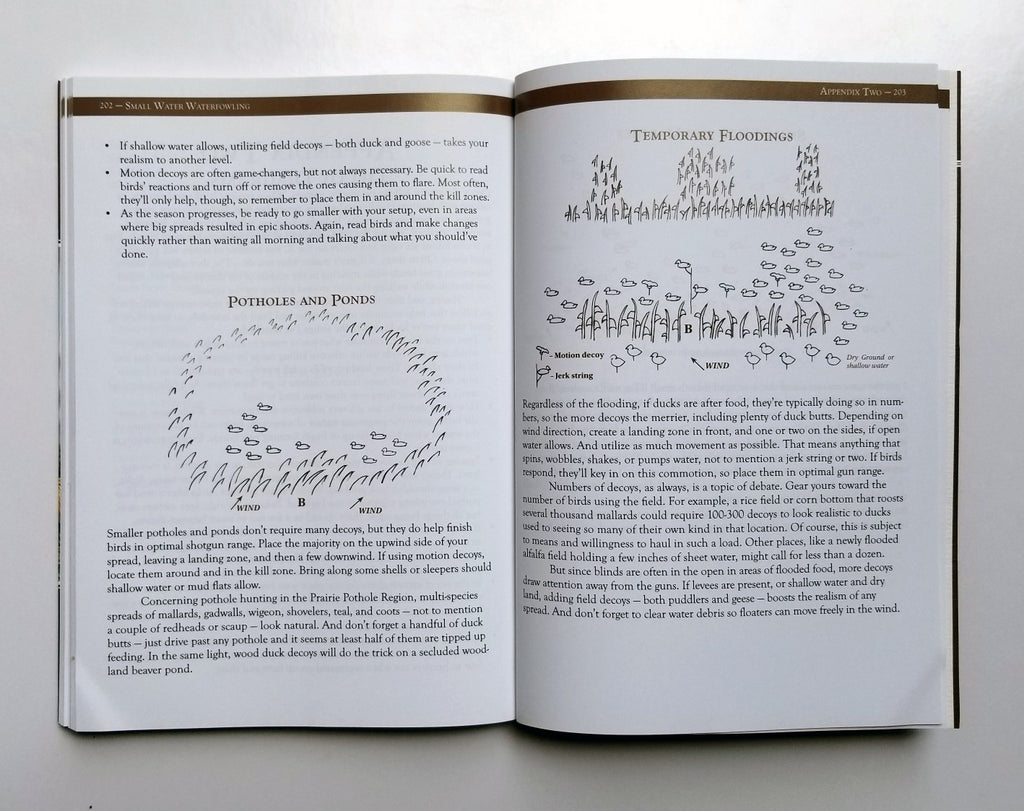 202 — Small Water Waterfowling
• If shallow water allows, utilizing field decoys — both duck and goose — takes your
realism to another level.
• Motion decoys are often game-changers, but not always necessary. Be quick to read
birds' reactions and turn off or remove the ones causing them to flare. Most often,
they'll only help, though, so remember to place them in and around the kill zones.
• As the season progresses, be ready to go smaller with your setup, even in areas
where big spreads resulted in epic shoots. Again, read birds and make changes
quickly rather than waiting all morning and talking about what you should've
done.
Potholes and Ponds
WIND
B
WIND
Smaller potholes and ponds don't require many decoys, but they do help finish
birds in optimal shotgun range. Place the majority on the upwind side of your
spread, leaving a landing zone, and then a few downwind. If using motion decoys,
locate them around and in the kill zone. Bring along some shells or sleepers should
shallow water or mud flats allow.
Concerning pothole hunting in the Prairie Pothole Region, multi-species
spreads of mallards, gadwalls, wigeon, shovelers, teal, and coots — not to mention
a couple of redheads or scaup — look natural. And don't forget a handful of duck
butts — just drive past any pothole and it seems at least half of them are tipped up
feeding. In the same light, wood duck decoys will do the trick on a secluded wood-
land beaver pond.
Appendix Two — 203
Temporary Floodings
B
- Motion decoy
- Jerk string
WIND
Dry Ground or
shallow water
Regardless of the flooding, if ducks are after food, they're typically doing so in num-
bers, so the more decoys the merrier, including plenty of duck butts. Depending on
wind direction, create a landing zone in front, and one or two on the sides, if open
water allows. And utilize as much movement as possible. That means anything that
spins, wobbles, shakes, or pumps water, not to mention a jerk string or two. If birds
respond, they'll key in on this commotion, so place them in optimal gun range.
Numbers of decoys, as always, is a topic of debate. Gear yours toward the
number of birds using the field. For example, a rice field or corn bottom that roosts
several thousand mallards could require 100-300 decoys to look realistic to ducks
used to seeing so many of their own kind in that location. Of course, this is subject
to means and willingness to haul in such a load. Other places, like a newly flooded
alfalfa field holding a few inches of sheet water, might call for less than a dozen.
But since blinds are often in the open in areas of flooded food, more decoys
draw attention away from the guns. If levees are present, or shallow water and dry
land, adding field decoys — both puddlers and geese — boosts the realism of any
spread. And don't forget to clear water debris so floaters can move freely in the wind.